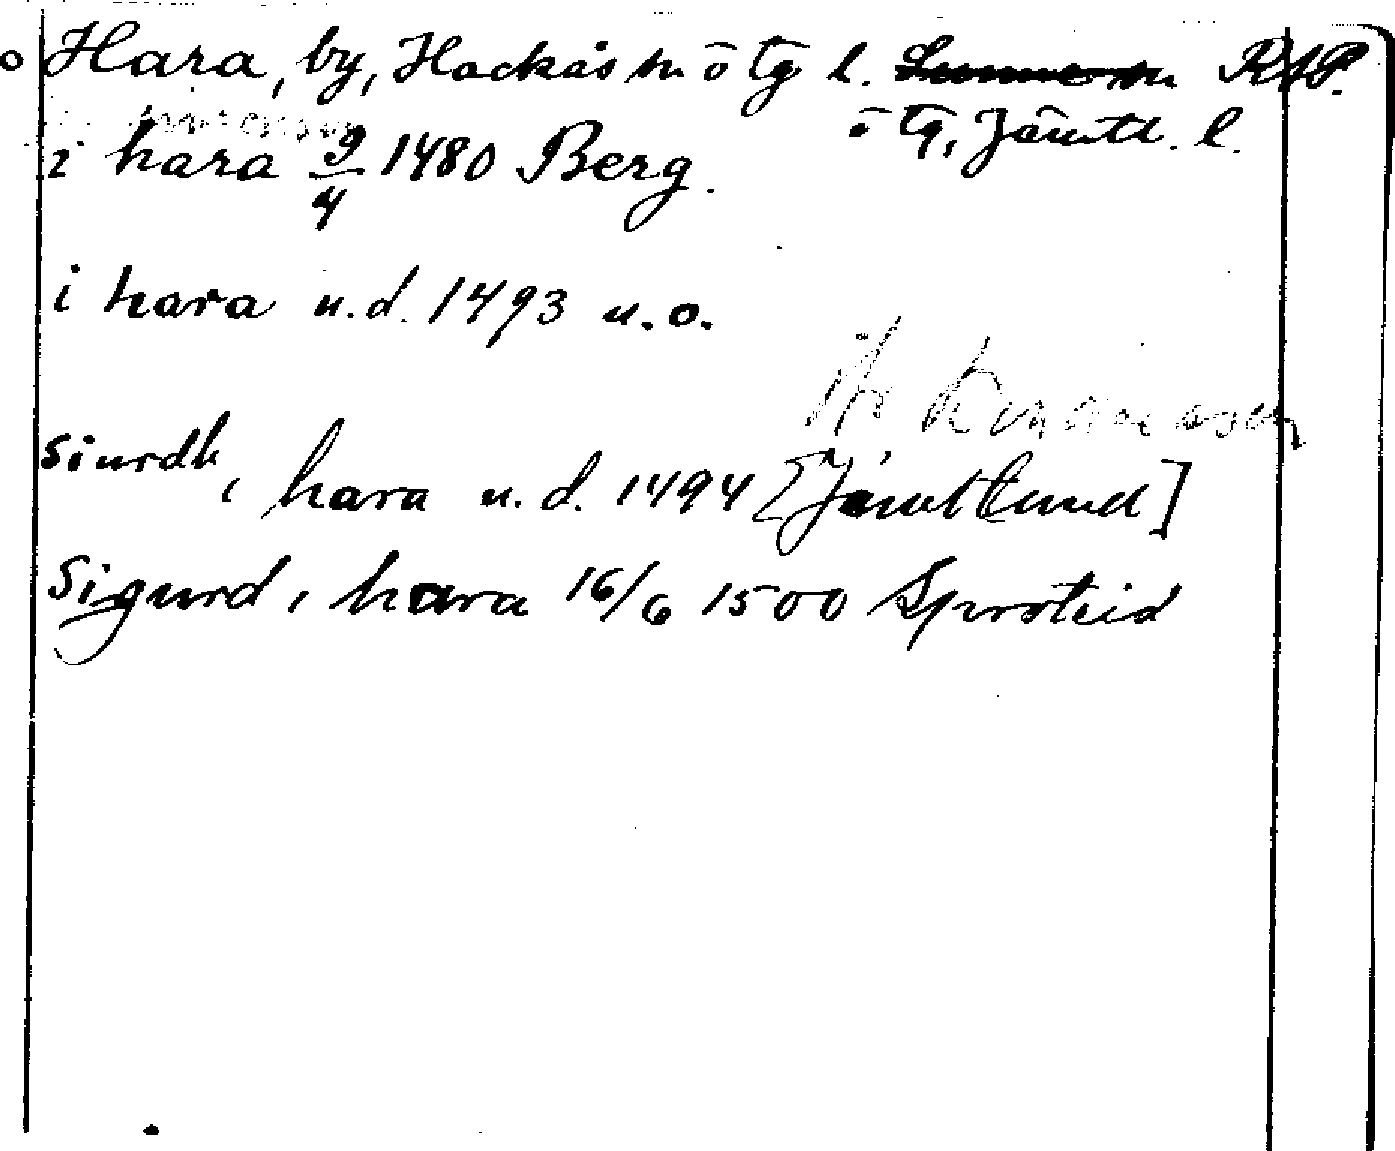 Hara, by, Hackås sn ö tg l. RAP.
ö tg, Jämtl. l.
i hara 9/4 1480 Berg.
i hara u.d. 1493 u.o.
siurdh, hara u.d. 1494 [Jämtland]
Sigurd, hara 16/6 1500 Sproteid